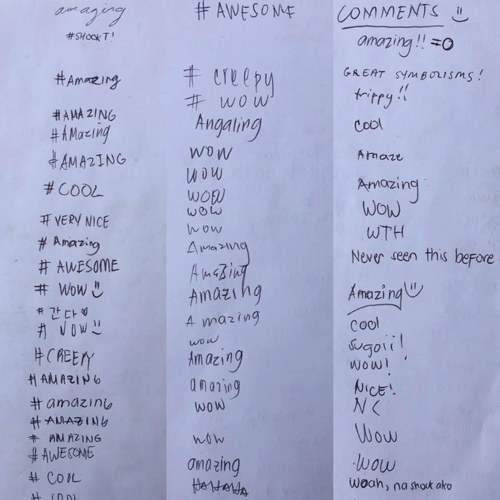 amazing
#SHOOKT!
#Amazing
#AMAZING
#AMazing
#AMAZING
#COOL
#VERY NICE
# Amazing
# AWESOME
# WOW
# 간다
# WOW
#CREEPY
#AMAZING
# amazing
#AMAZING
# AMAZING
#AWESOME
# COOL
# AWESOME
# creepy
# WOW
Angaling
WOW
WOW
WOW
WOW
WOW
Amazing
Amazing
Amazing
Amazing
wow
Amazing
amazing
WOW
WOW
amazing
HAHAHA
COMMENTS
amazing!! =O
GREAT SYMBOLISMS!
trippy!!
cool
Amaze
Amazing
WOW
WTH
Never seen this before
Amazing
cool
sugoii!
WOW!
NICE!
WOW
WOW
woah, na shook ako